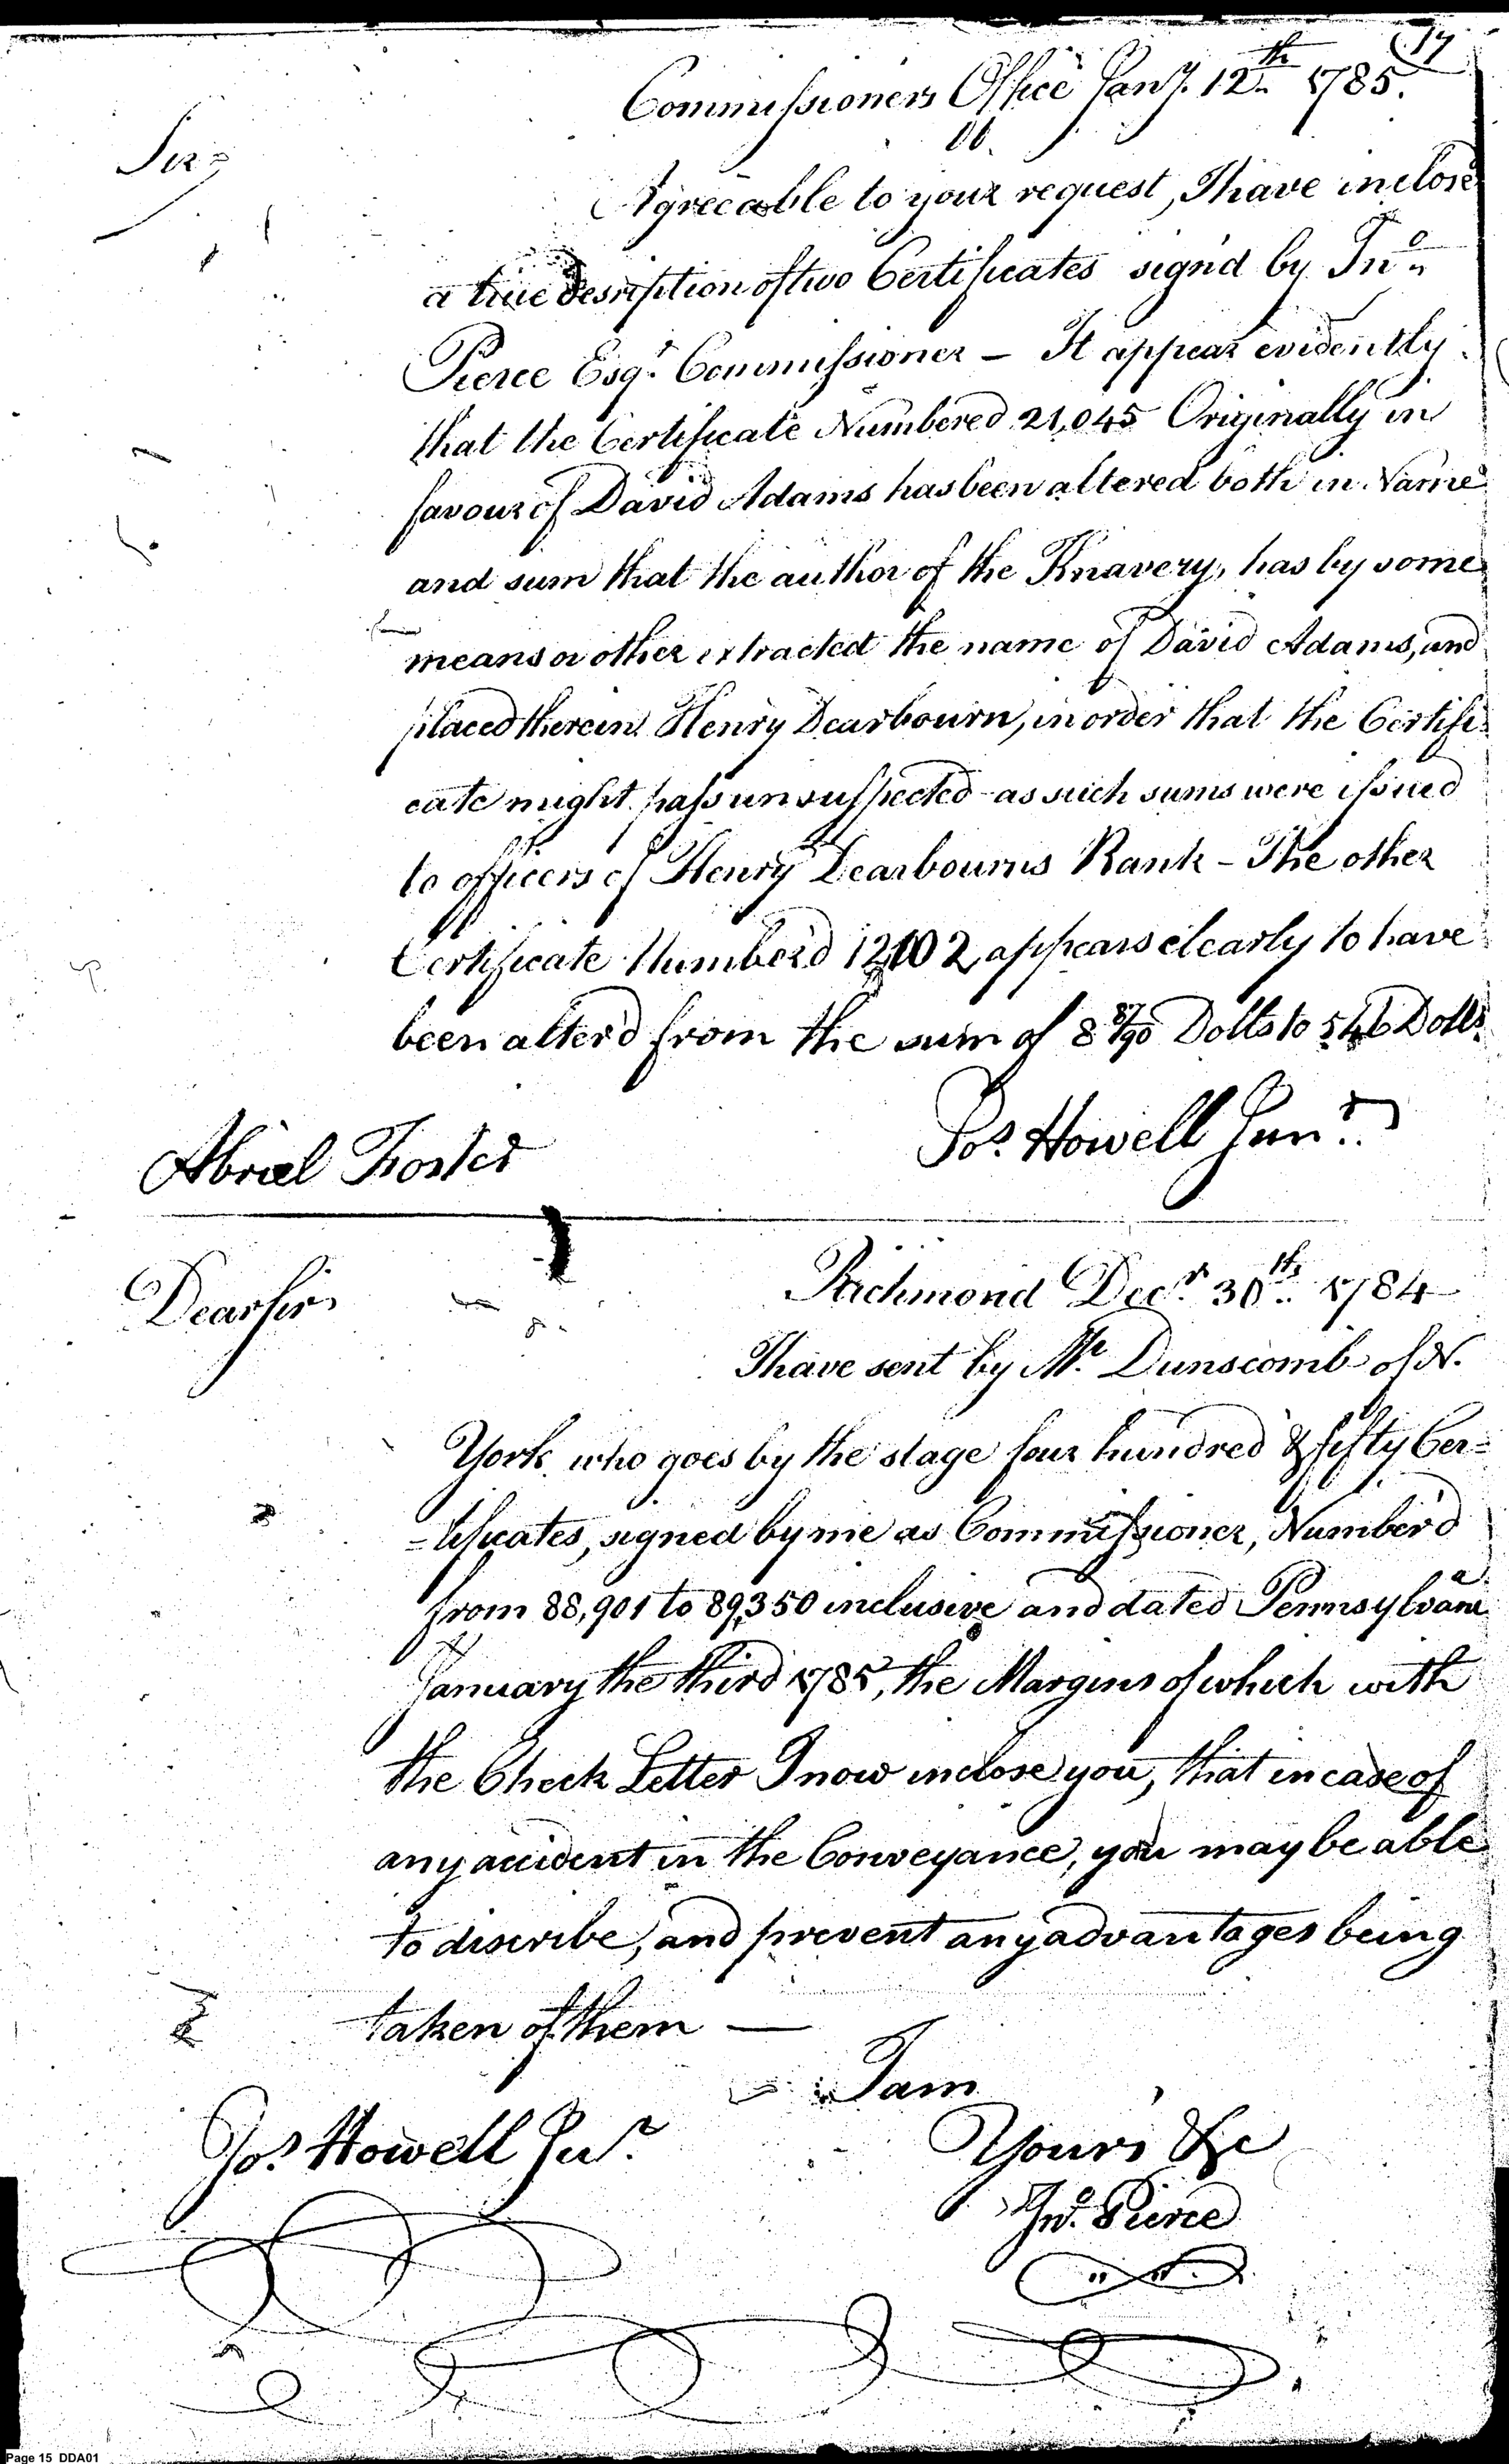 17
Commissioners Office Jany. 12th 1785.
Sir,
Agrecable to your request, I have inclose
a true desription of two Certificates sign'd by Jno
Pierce Esqr. Commissioner – It appear evidently
that the Certificate Numbered 21,045 Originally in
favour of David Adams has been altered both in Name
and sum that the author of the Knavery, has by some
means or other extracted the name of David Adams, and
placed therein Henry Dearbourn, in order that the Certifi-
cate might pass unsuspected - as such sums were issued
to officers of Henry Dearbourns Rank – The other
Certificate Number'd 12102 appears clearly to have
been alter'd from the sum of 8 87/90 Dolls to 546 Dolls.
Jos. Howell Junr.
Abriel Foster
Dear sir,
Richmond Decr. 30th. 1784
I have sent by Mr. Dunscomb of N.
York who goes by the stage four hundred & fifty Cer=
=tificates, signed by me as Commissioner, Number'd
from 88,901 to 89,350 inclusive and dated Pennsylvania
January the third 1785, the Margins of which with
the Check Letter I now inclose you, that in case of
any accident in the Conveyance, you may be able
to discribe, and prevent any advantages being
taken of them —
I am
Jos. Howell Jur.
Yours &c
Jno. Pierce
Page 15 DDA01